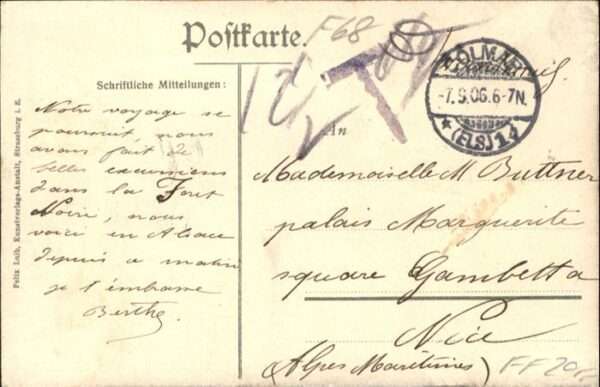 Postkarte.
F68
Schriftliche Mitteilungen:
Notre voyage se
poursuit nous
avons fait de
belles excursions
dans la Foret
Noire, nous
voici en Alsace
depuis ce matin
je t'embrasse
Berthe
Felix Luib, Kunstverlags-Anstalt, Strassburg i. E.
T
COLMAR
-7.9.06.6-7N.
* (ELS) 1d
An
Mademoiselle M Buttner
palais Marguerite
square Gambetta
Nice
(Alpes Maritimes)
FF20